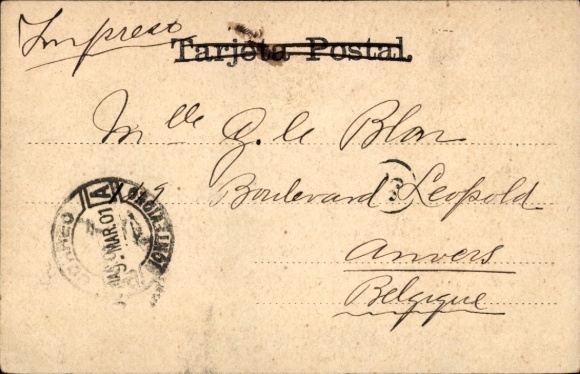 Impreso
Tarjeta Postal
Mlle G. le Blon
Boulevard Leopold
Anvers
Belgique
A
MAR. 01
B